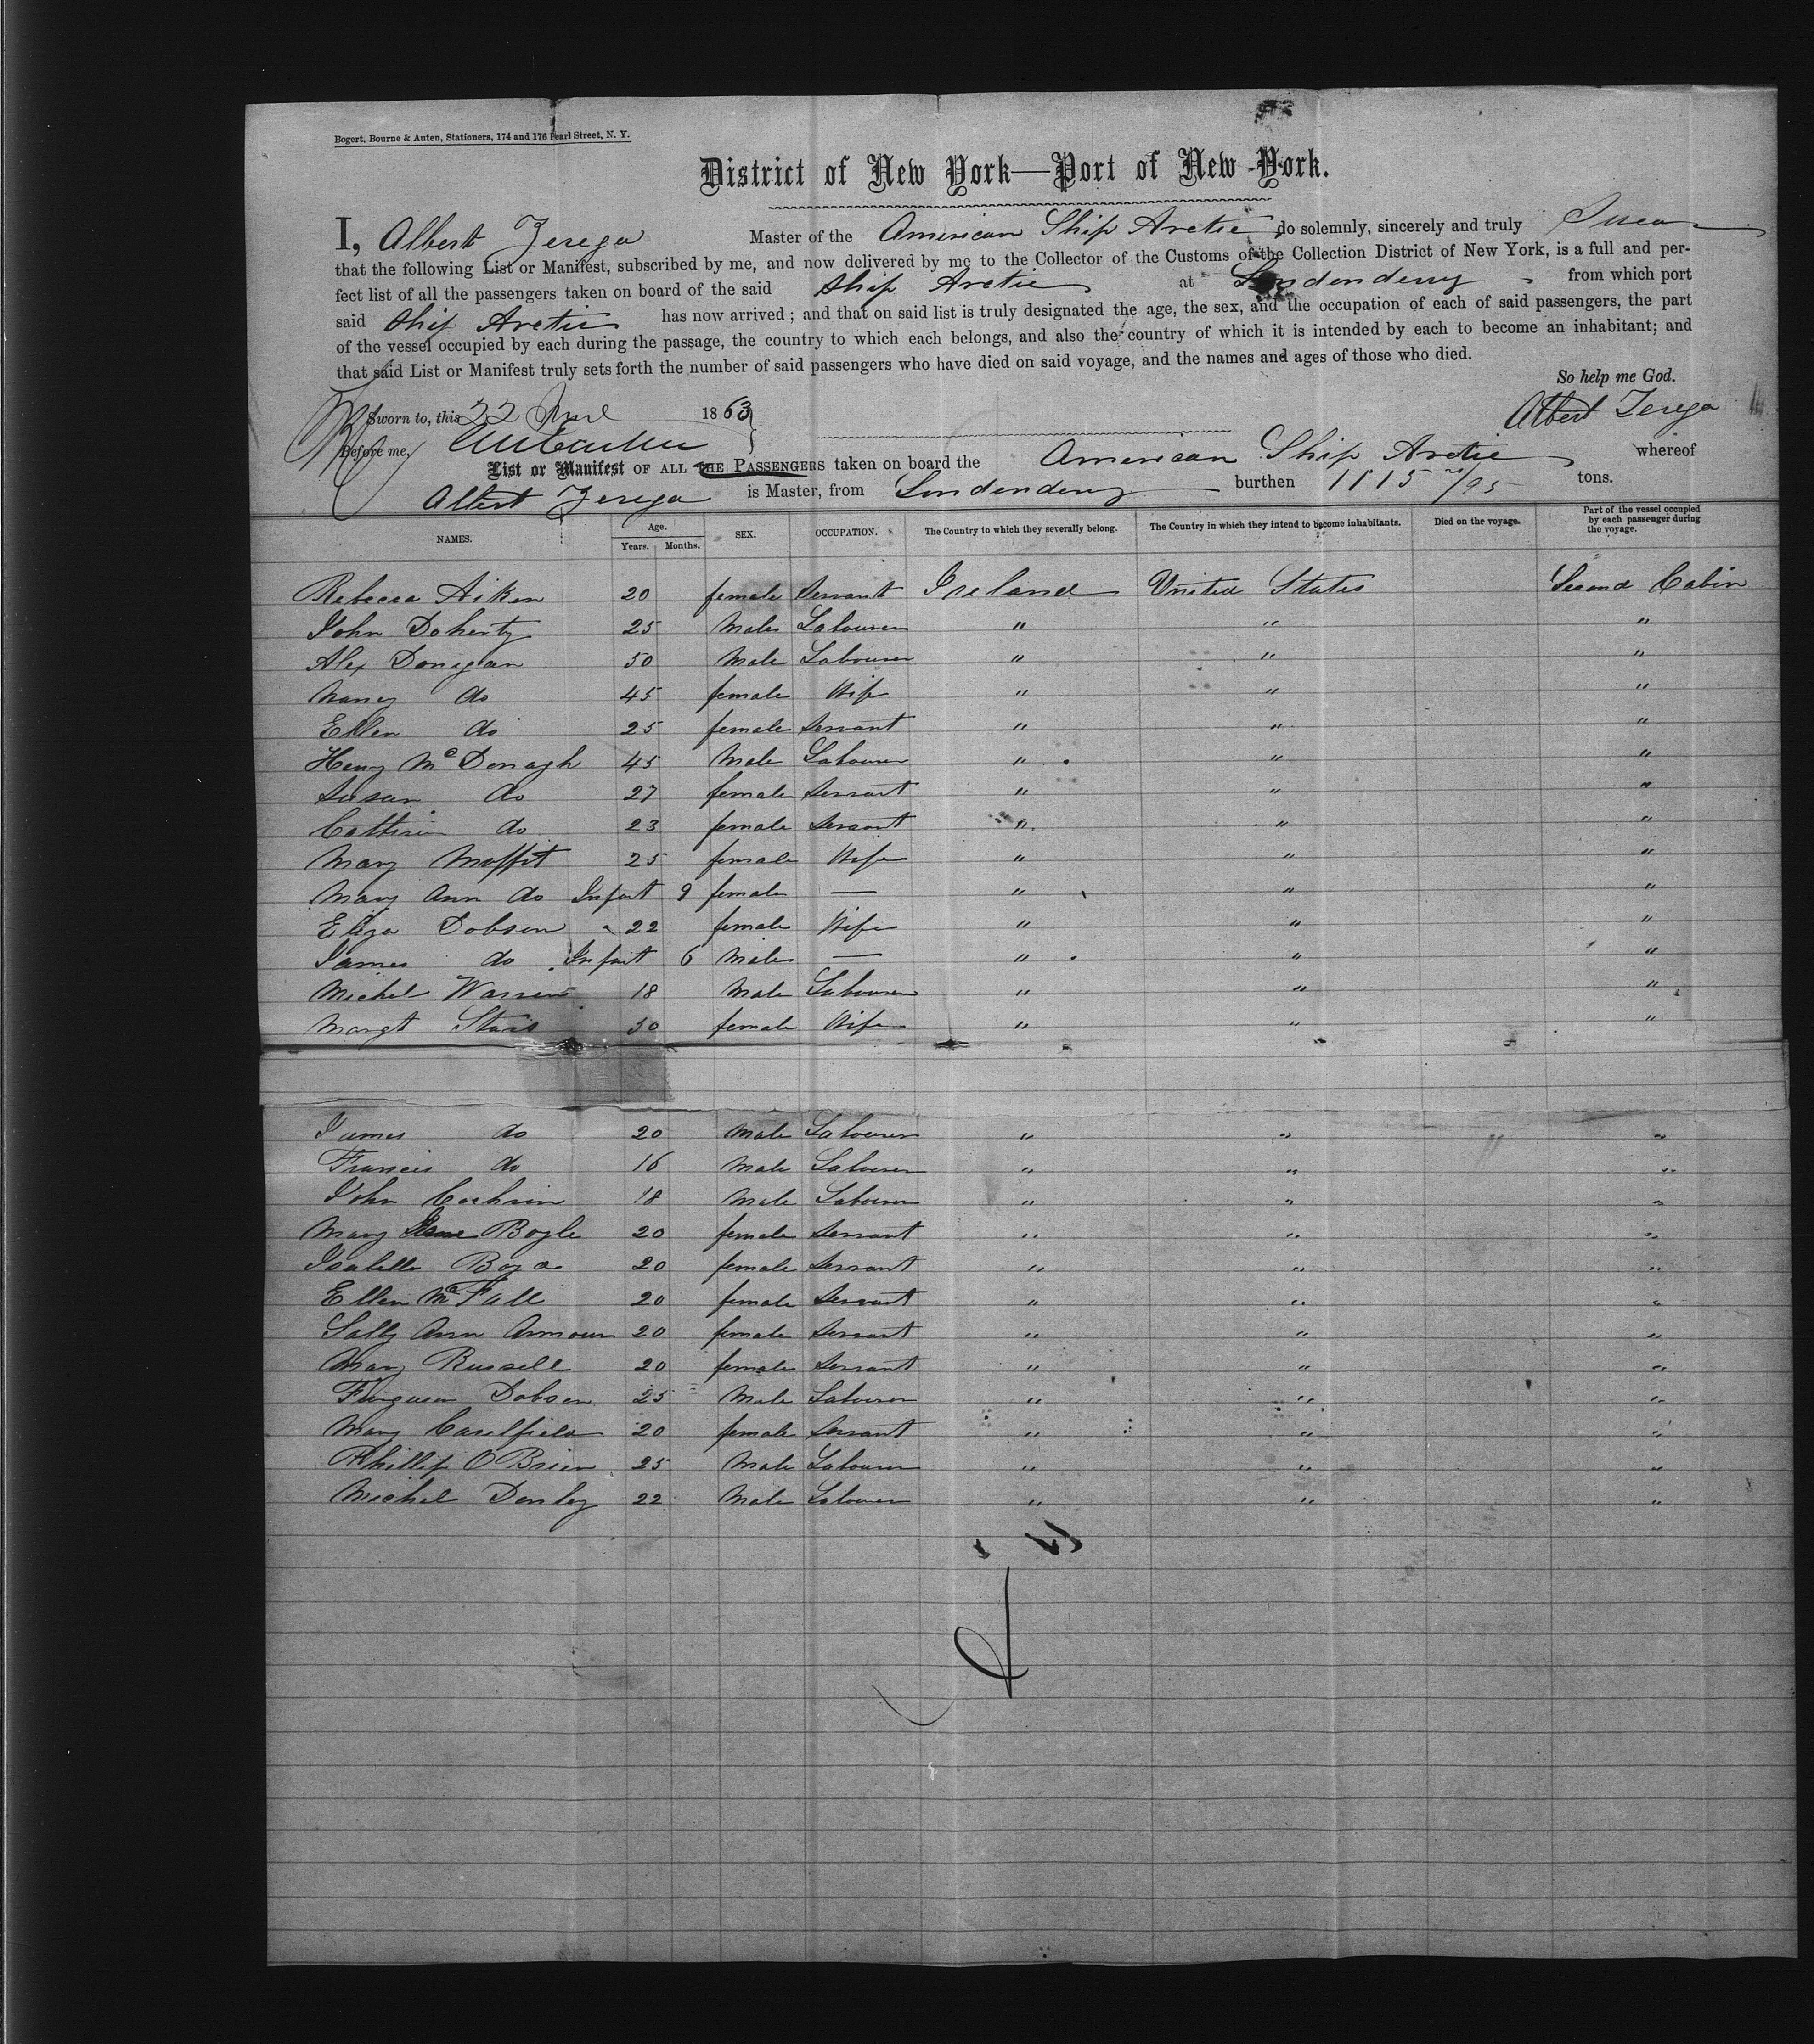 Bogert, Bourne & Auten, Stationers, 174 and 176 Pearl Street, N. Y.
District of New York—Port of New York.
I, Albert Zerega Master of the American Ship Arctic do solemnly, sincerely and truly Swear
that the following List or Manifest, subscribed by me, and now delivered by me to the Collector of the Customs of the Collection District of New York, is a full and per-
fect list of all the passengers taken on board of the said Ship Arctic at Londonderry from which port
said Ship Arctic has now arrived; and that on said list is truly designated the age, the sex, and the occupation of each of said passengers, the part
of the vessel occupied by each during the passage, the country to which each belongs, and also the country of which it is intended by each to become an inhabitant; and
that said List or Manifest truly sets forth the number of said passengers who have died on said voyage, and the names and ages of those who died.
So help me God.
Sworn to, this 22 June 1863 Albert Zerega
Before me,
List or Manifest OF ALL THE PASSENGERS taken on board the American Ship Arctic whereof
Albert Zerega is Master, from Londonderry burthen 1115 /95 tons.
NAMES. Age. Years. Months. SEX. OCCUPATION. The Country to which they severally belong. The Country in which they intend to become inhabitants. Died on the voyage. Part of the vessel occupied by each passenger during the voyage.
Rebecca Aiken 20 female Servant Ireland United States Second Cabin
John Doherty 25 Male Labourer " " "
Alex Donegan 50 Male Labourer " " "
Nancy do 45 female Wife " " "
Ellen do 25 female Servant " " "
Henry McDonagh 45 Male Labourer " " "
Susan do 27 female Servant " " "
Catherine do 23 female Servant " " "
Mary Moffit 25 female Wife " " "
Mary Ann do Infant 9 female — " " "
Eliza Dobson 22 female Wife " " "
James do Infant 6 Male — " " "
Michel Warren 18 Male Labourer " " "
Margt 30 female Wife " " "
James do 20 Male Labourer " " "
Francis do 16 Male Labourer " " "
John Cochrin 18 Male Labourer " " "
Mary Jane Boyle 20 female Servant " " "
Isabella Boyd 20 female Servant " " "
Ellen McFall 20 female Servant " " "
Sally Ann Armour 20 female Servant " " "
Mary Russell 20 female Servant " " "
Ferguson Dobson 25 Male Labourer " " "
Mary Caulfield 20 female Servant " " "
Phillip O'Brien 25 Male Labourer " " "
Michel 22 Male Labourer " " "